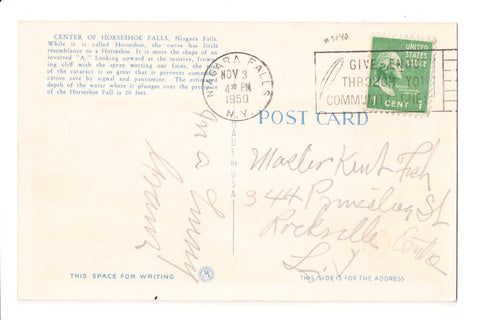 CENTER OF HORSESHOE FALLS, Niagara Falls.
While it is called Horseshoe, the curve has little
resemblance to a Horseshoe. It is more the shape of an
inverted "A." Looking upward at the massive, frown-
ing cliff with the spray wetting our faces, the
of the cataract is so great that it prevents communica-
tion save by signal and pantomime. The estimated
depth of the water where it plunges over the precipice
of the Horseshoe Fall is 20 feet.
#3040
NIAGARA FALLS
NOV 3
4 30 PM
1950
N.Y.
GIVE
THROUGH YOU
COMMUNITY CHE
UNITED
STATES
1 CENT 1
POST CARD
MADE IN USA
In a hurry
Gramp
Master Kent Fish
344 St
Rockville Centre
L.I.
THIS SPACE FOR WRITING
CM
THIS SIDE IS FOR THE ADDRESS